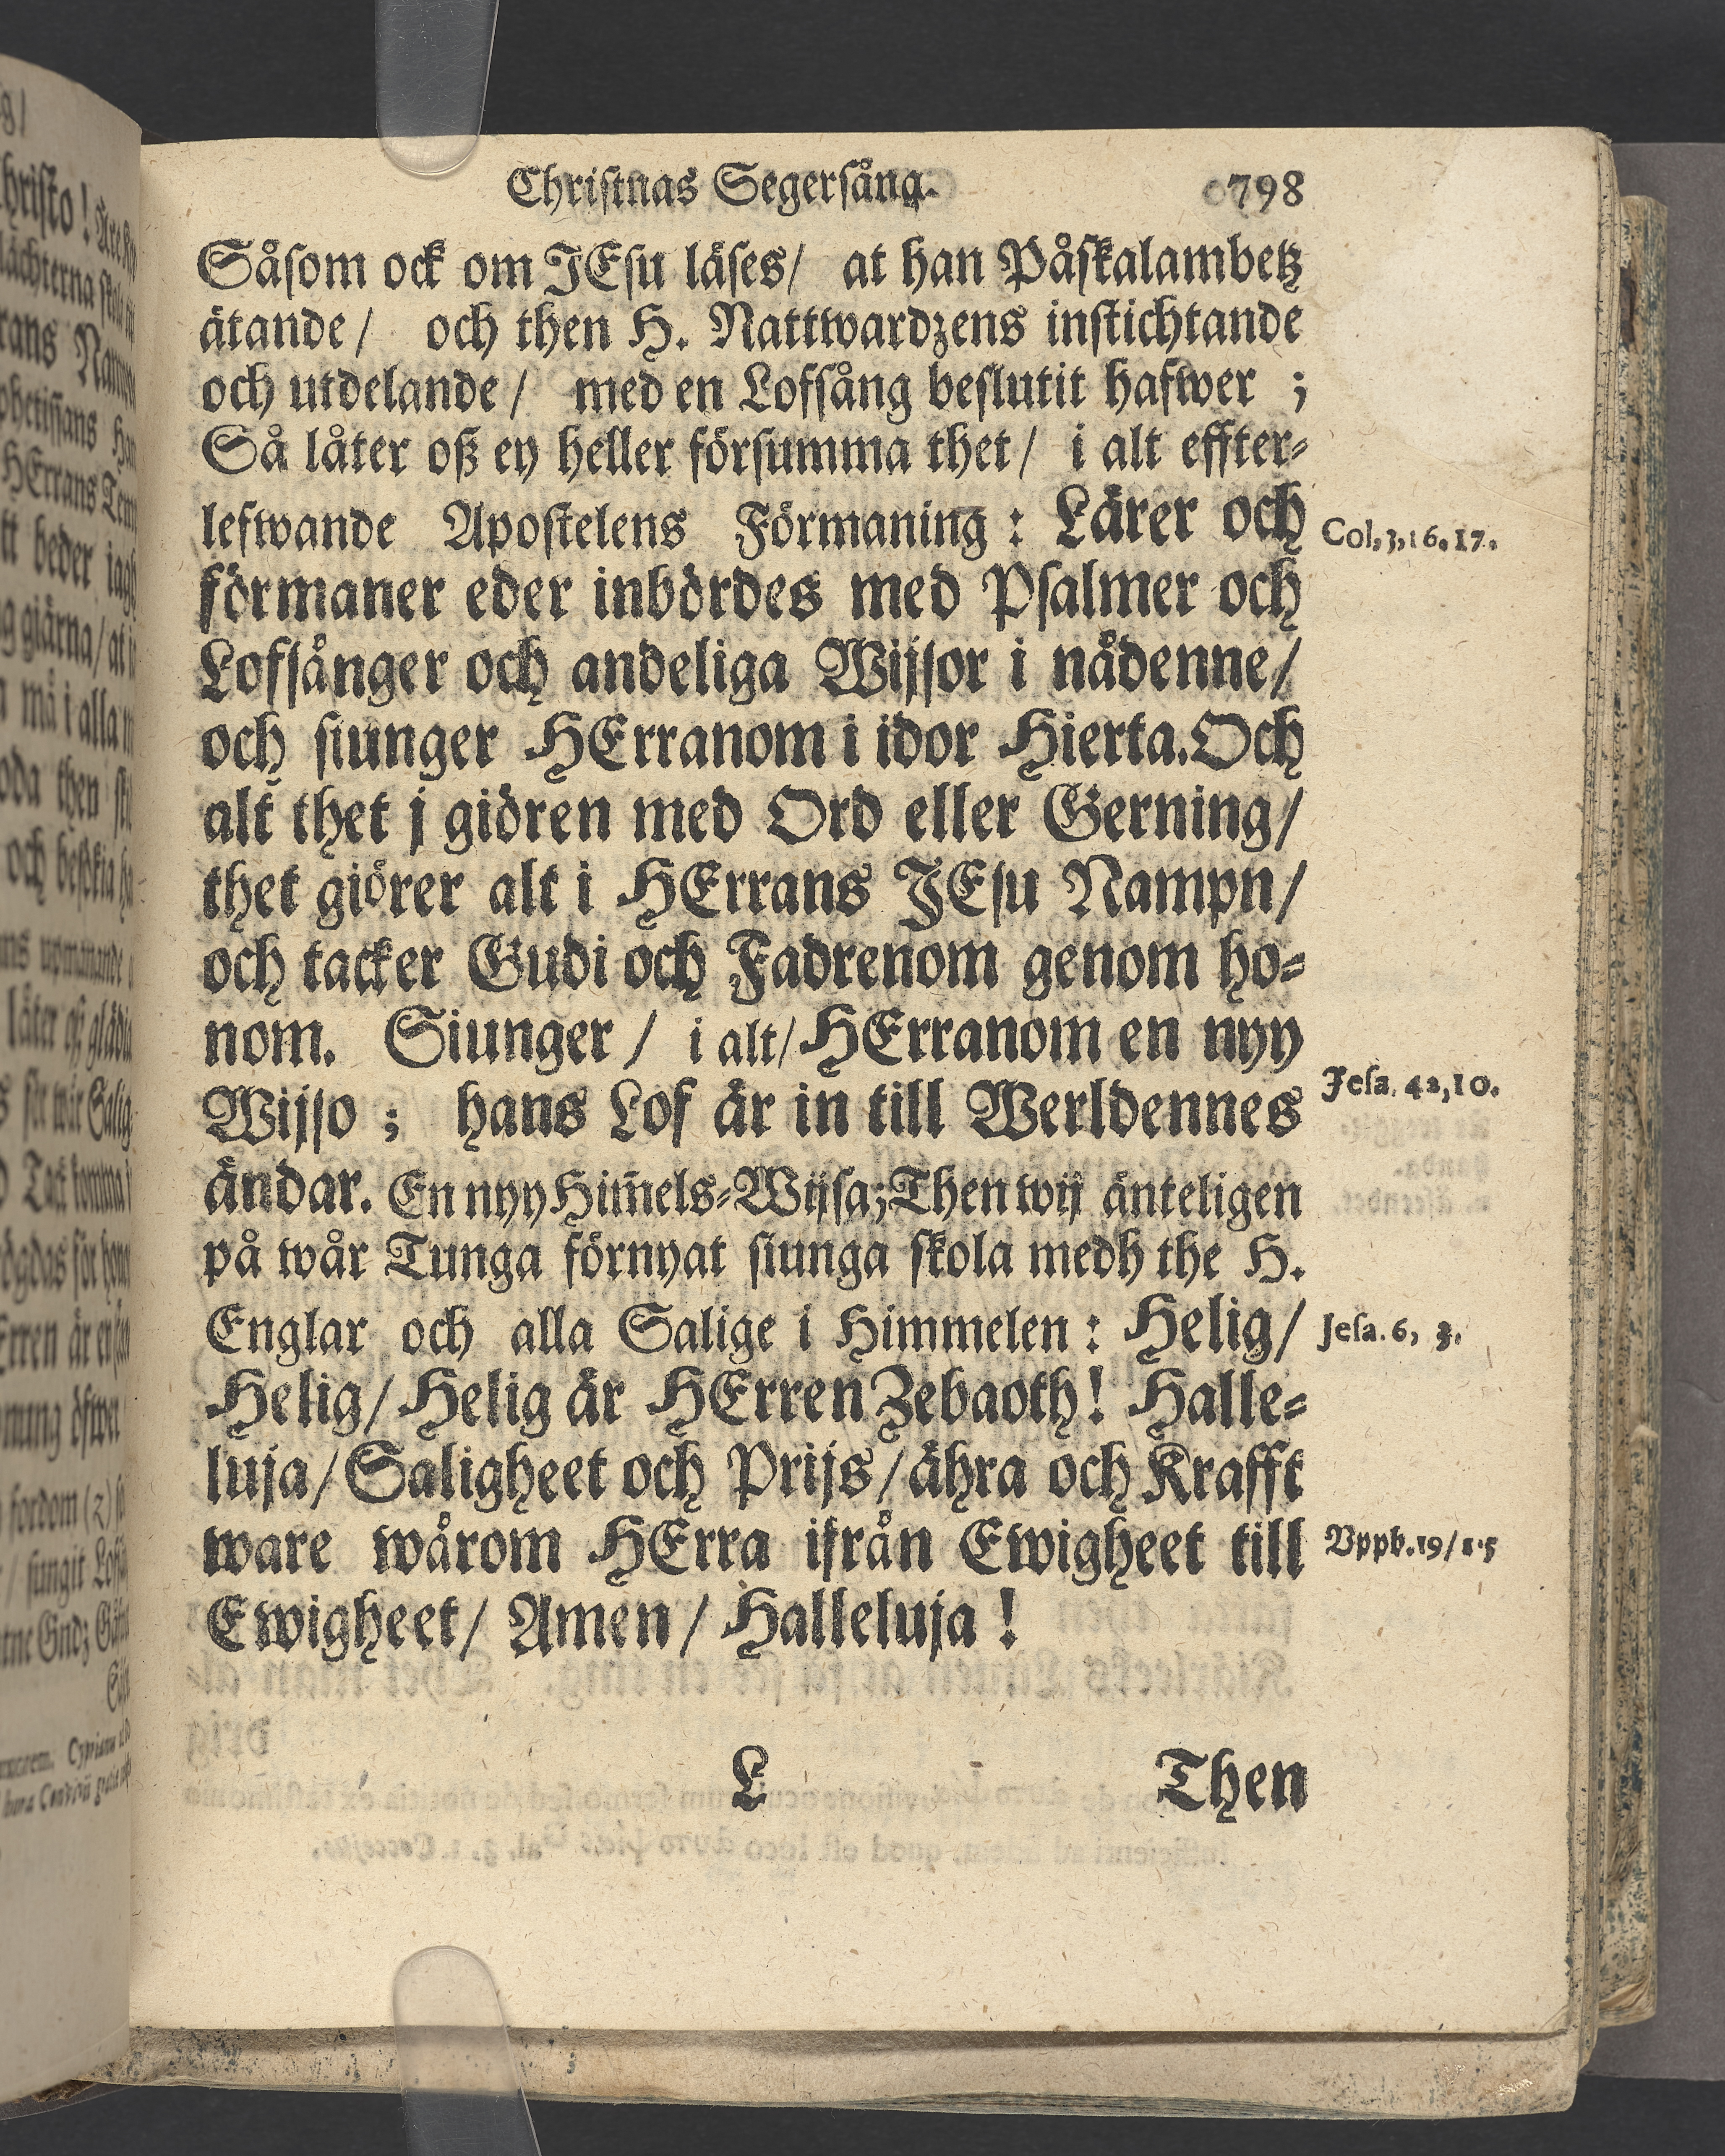 Christnas Segersång.
798
Såsom ock om JEsu läses/ at han Påskalambetz
ätande/ och then H. Nattwardzens instichtande
och utdelande/ med en Lofsång beslutit hafwer ;
Så låter oß ey heller försumma thet/ i alt effter⸗
lefwande Apostelens Förmaning : Lärer och
Col. 3, 16. 17.
förmaner eder inbördes med Psalmer och
Lofsånger och andeliga Wijsor i nådenne/
och siunger HErranom i idor Hierta. Och
alt thet j giören med Ord eller Gerning/
thet giörer alt i HErrans JEsu Nampn/
och tacker Gudi och Fadrenom genom ho⸗
nom. Siunger/ i alt/ HErranom en nyy
Jesa. 42, 10.
Wijso ; hans Lof är in till Werldennes
ändar. En nyy Him̃els⸗Wijsa; Then wij änteligen
på wår Tunga förnyat siunga skola medh the H.
Englar och alla Salige i Himmelen : Helig/
Jesa. 6, 3.
Helig/ Helig är HErren Zebaoth! Halle⸗
luja/ Saligheet och Prijs/ ähra och Krafft
ware wårom HErra ifrån Ewigheet till
Vppb. 19/1.5
Ewigheet/ Amen/ Halleluja !
L
Then